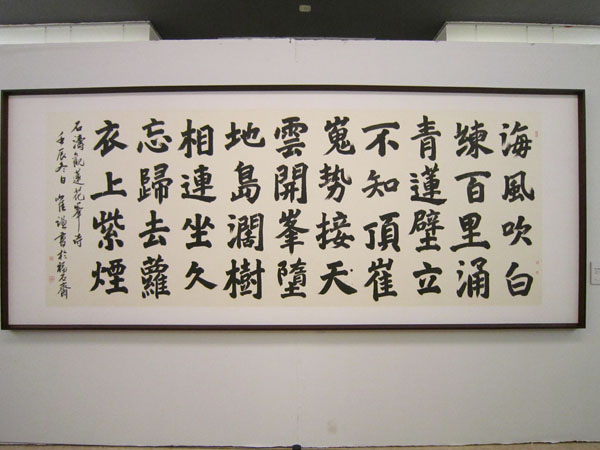 海風吹白
練百里涌
青蓮壁立
不知頂崔
嵬勢接天
雲開峯墮
地島濶樹
相連坐久
忘歸去蘿
衣上紫煙
石濤觀蓮花峯詩
壬辰冬日 崔謹書於楊石齋